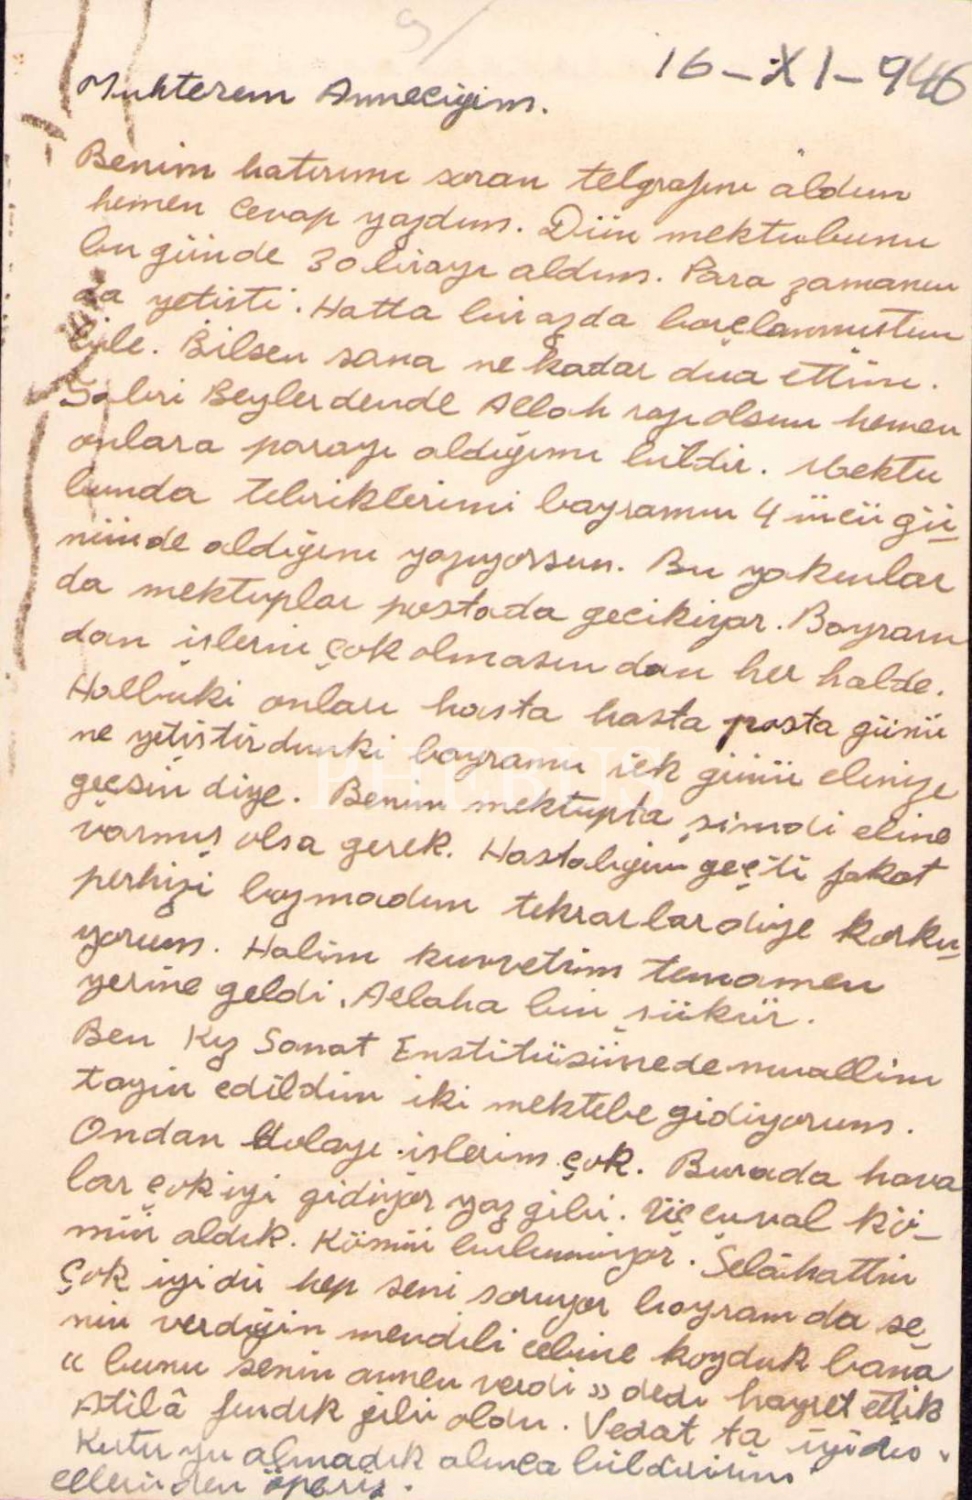 16-XI-946
Muhterem Anneciğim.
Benim hatırımı soran telgrafını aldım
hemen cevap yazdım. Dün mektubunu
bu günde 30 lirayı aldım. Para zamanın
da yetisti. Hatta birazda borçlanmıstım
bile. Bilsen sana ne kadar dua ettim.
Sabri Beylerdende Allah razı olsun hemen
onlara parayı aldığımı bildir. Mektu
bunda tebriklerimi bayramın 4 üncü gü
nünde aldığını yazıyorsun. Bu yakınlar
da mektuplar postada gecikiyor. Bayram
dan işlerin çok olmasın dan her halde.
Halbuki onları hasta hasta posta günü
ne yetiştirdimki bayramın ilk günü elinize
geçsin diye. Benim mektupta şimdi eline
varmış olsa gerek. Hastalığım geçti fakat
perhizi bozmadım tekrarlar diye korku
yorum. Halim kuvvetim tamamen
yerine geldi. Allaha bin şükür.
Ben Kız Sanat Enstitüsünede muallim
tayin edildim iki mektebe gidiyorum.
Ondan dolayı islerim çok. Burada hava
lar çok iyi gidiyor yaz gibi. Üç çuval kö-
mür aldık. Kömür bulunmıyor. Selâhattin
çok iyidir hep seni soruyor bayramda se
nin verdiğin mendili cebine koyduk bana
"bunu senin annen verdi" dedi hayret ettik
Atilâ fındık gibi oldu. Vedat ta iyidir.
Kutuyu almadık alınca bildiririm
ellerinden öperiz.
PHEBUS